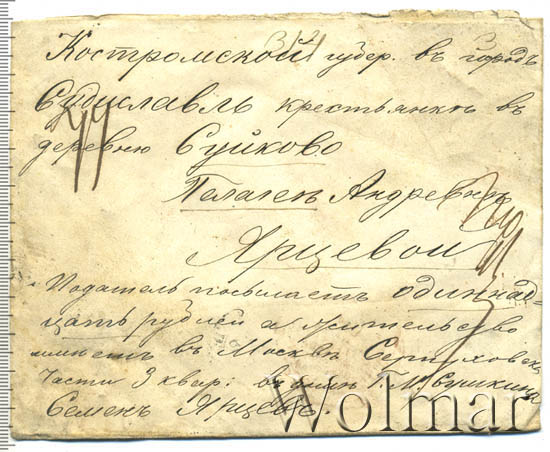 Костромской губер. въ городъ
Судиславль крестьянкѣ въ
деревню Суйково
Пелагеѣ Андревнѣ
Ярцевой
Податель посылаетъ одиннад-
цать рублей а жительство
имѣетъ въ Москвѣ Серпуховск.
части 3 квар: въ домѣ Г.
Семенъ Ярцевъ.
Wolmar